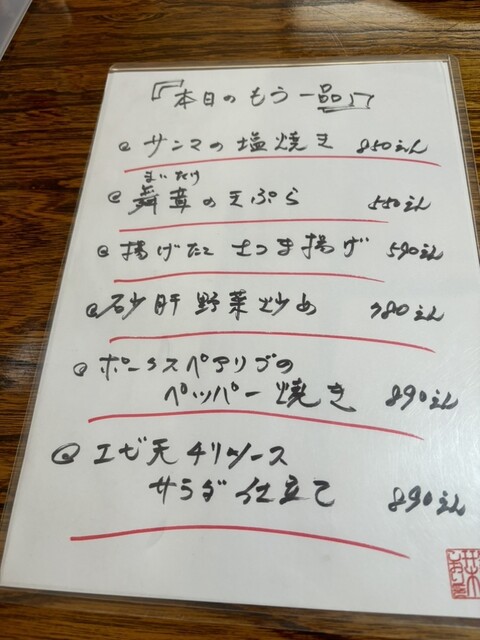 『本日のもう一品』
@ サンマの塩焼き 850えん
まいたけ
@ 舞茸の天ぷら 550えん
@ 揚げたて さつま揚げ 590えん
@ 砂肝野菜炒め 780えん
@ ポークスペアリブの
ペッパー焼き 890えん
@ エビ天チリソース
サラダ仕立て 890えん